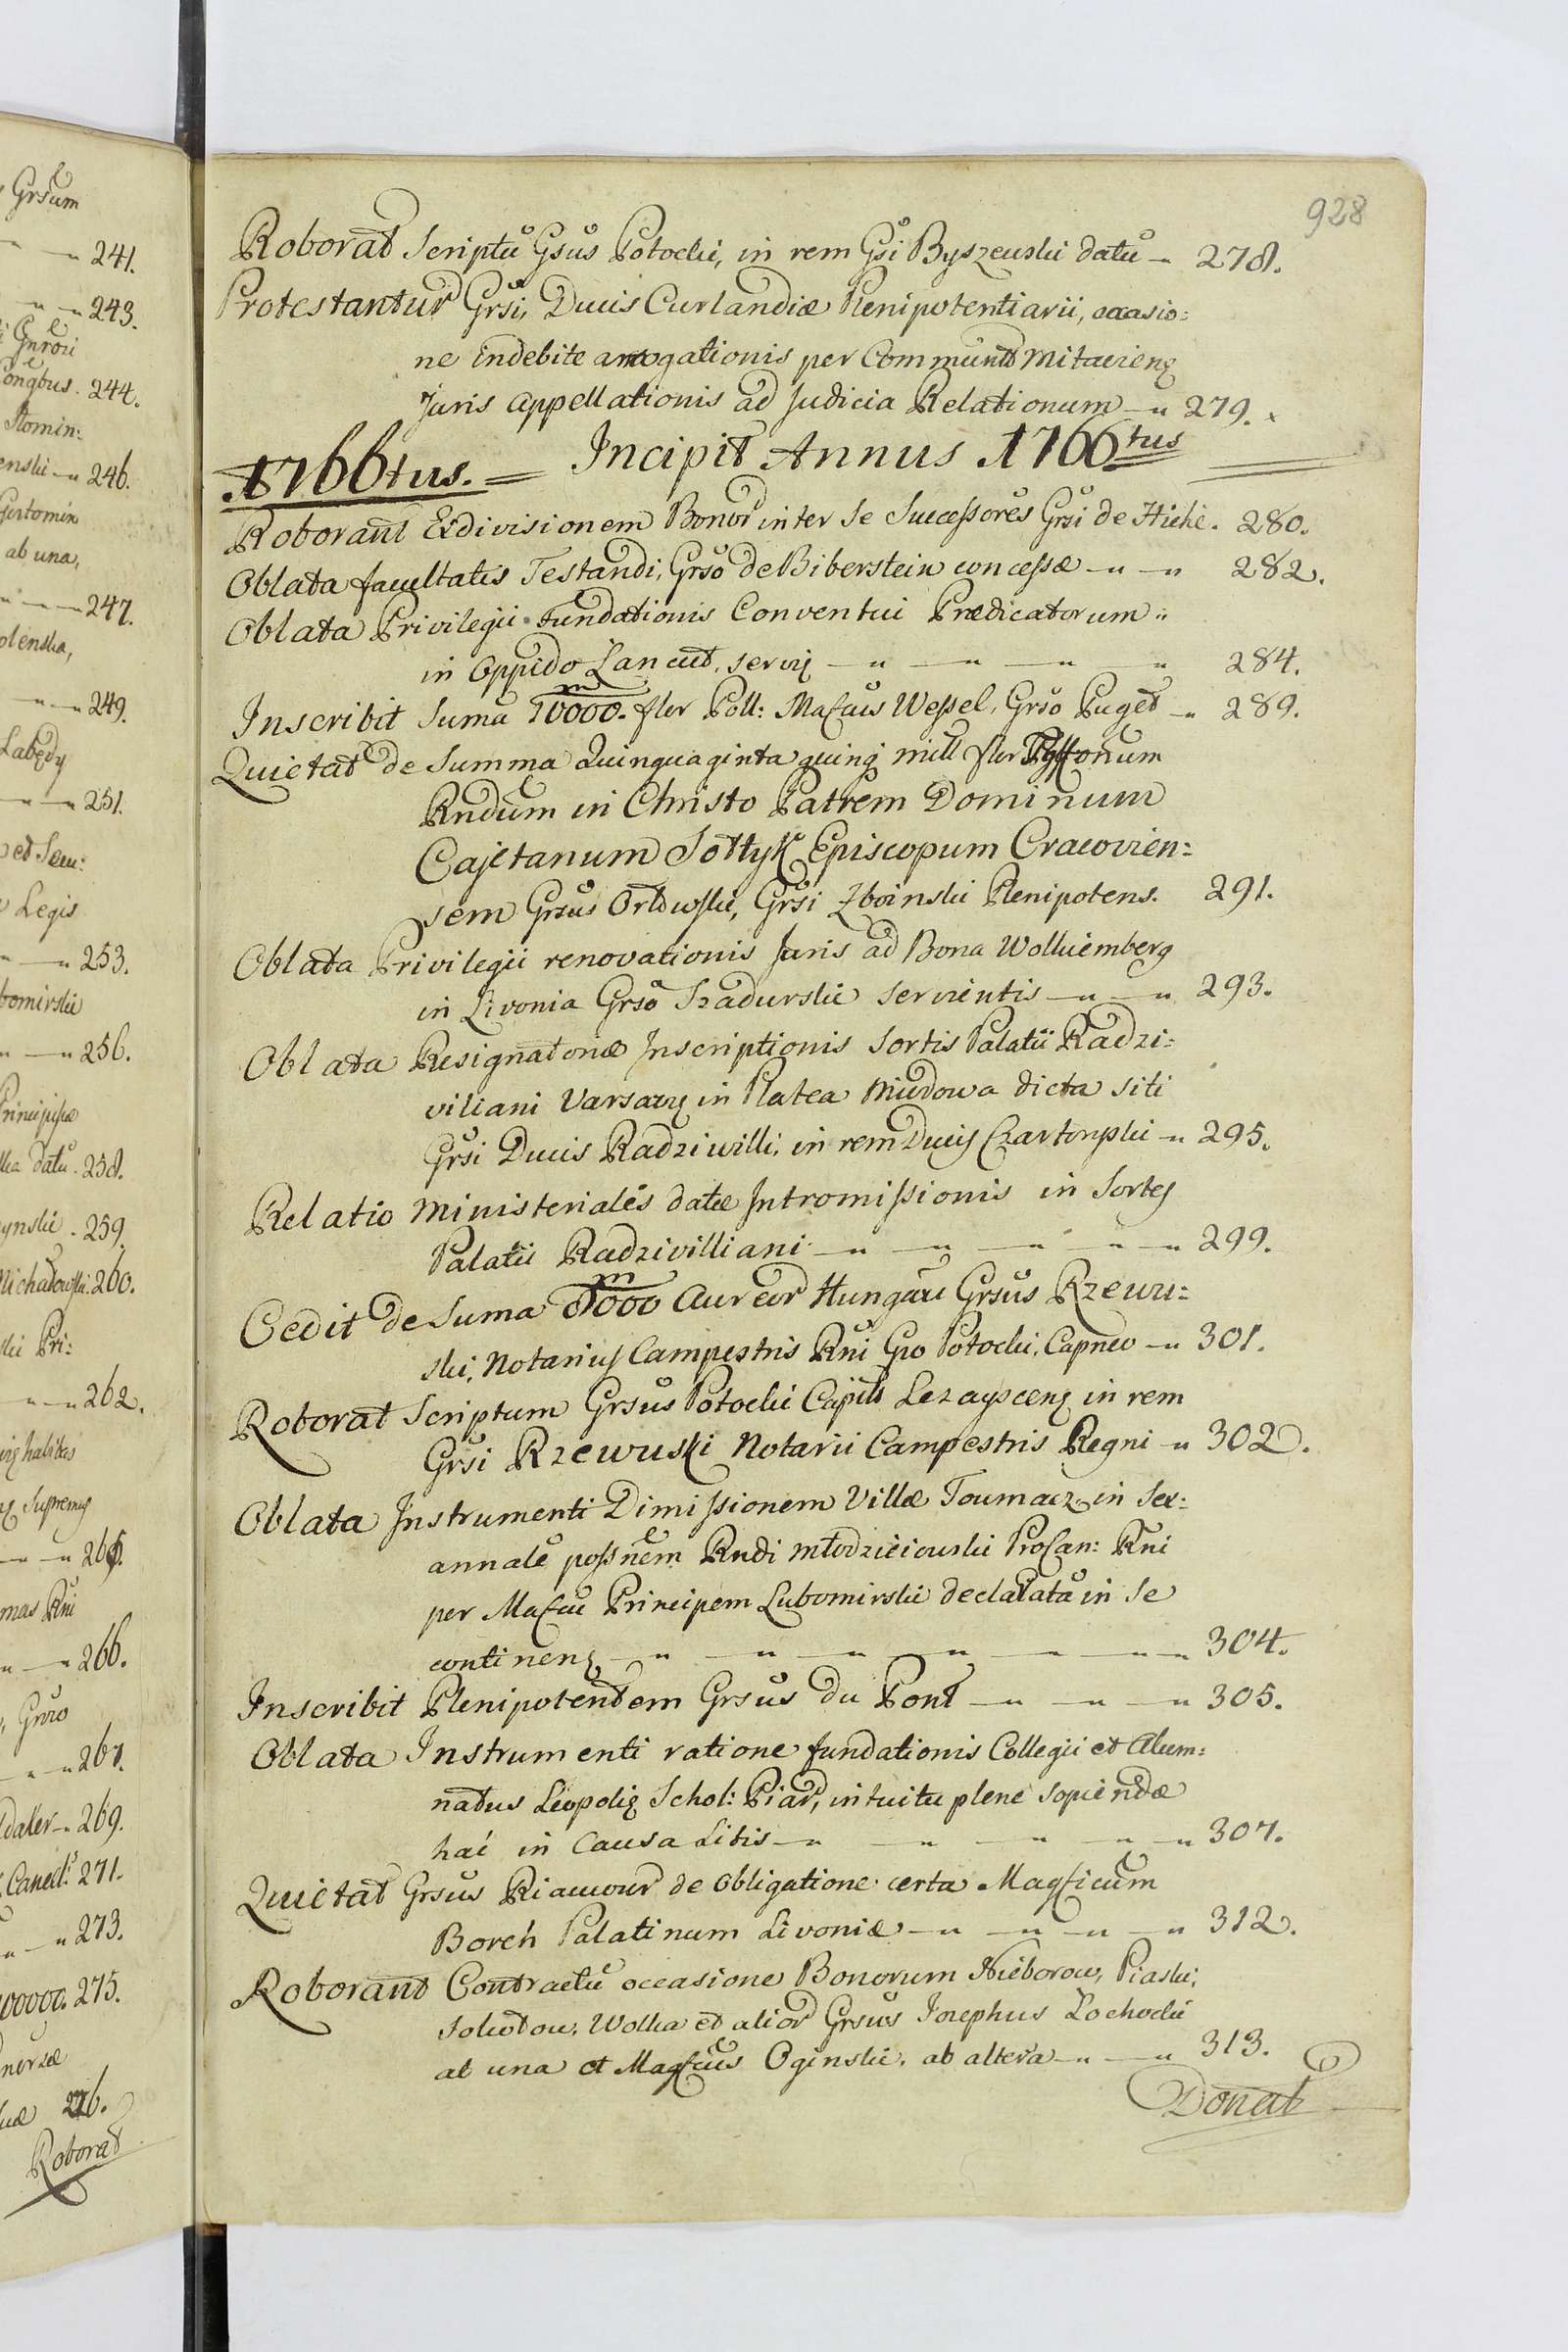 928
Roborat Scriptũ Gsus Potocki, in rem Gsi Byszewski datũ 278.
Protestantur Grsi, Ducis Curlandiæ Plenipotentiarii, occasio:
ne indebite arrogationis per Communit Mitaviens
Juris Appellationis ad Judicia Relationum 279.
1766tus. = Incipit Annus 1766tus
Roborant Exdivisionem Bonor inter se Successores Grsi de Hiché. 280.
Oblata facultatis Testandi, Grso de Biberstein concessæ 282.
Oblata Privilegii Fundationis Conventui Prædicatorum
in Oppido Lancut, serviens 284.
Inscribit Sumã 10000 flor Poll: Maſcus Wessel, Grso Puget 289.
Quietat de Summa Quinquaginta quinq mill flor
Rndum in Christo Patrem Dominum
Cajetanum Sołtyk Episcopum Cracovien:
sem Grsus Orłowski, Grsi Zboinski Plenipotens. 291.
Oblata Privilegii renovationis Juris ad Bona Wolkiemberg
in Livonia Grso Szadurski servientis 293.
Oblata Resignatoriæ Inscriptionis Sortis Palatii Radzi:
viliani Varsaviæ in Platea Miodowa dicta siti
Grsi Ducis Radziwilli, in rem Ducis Czartoryski 295.
Relatio Ministerialis datæ Intromissionis in Sortes
Palatii Radzivilliani 299.
Cedit de Suma 8000 Aureor Hungari Grsus Rzewu:
ski, Notarius Campestris Rni Gro Potocki, Capneo 301.
Roborat Scriptum Grsus Potocki Capits Lezayscens in rem
Grsi Rzewuski Notarii Campestris Regni 302.
Oblata Instrumenti Dimissionem Villæ Toumacz in Sex:
annale possnem Rndi Młodzieiowski ProCan: Rni
per Maſcu Principem Lubomirski declaratã in se
continens 304.
Inscribit Plenipotentem Grsus du Pont 305.
Oblata Instrumenti ratione fundationis Collegii et Alum:
natus Leopolis Schol: Piar, intuitu plene sopiendæ
hac in Causa Litis 307.
Quietat Grsus Riaucour de obligatione certa Magficum
Borch Palatinum Livoniæ 312.
Roborant Contractũ occasione Bonorum Nieborow, Piaski,
Wolka et alior Grsus Josephus Łochocki
ab una et Magfcus Oginski, ab altera 313.
Donat
Grsum
241.
243.
244.
246.
ab una,
247.
249.
Łabędy
251.
Legis
253.
bomirski
256.
datũ 258.
ynski 259.
Michałowski. 260.
ski Pri:
262.
265.
mas Rni
266.
267.
269.
271.
273.
275.
276.
Roborat